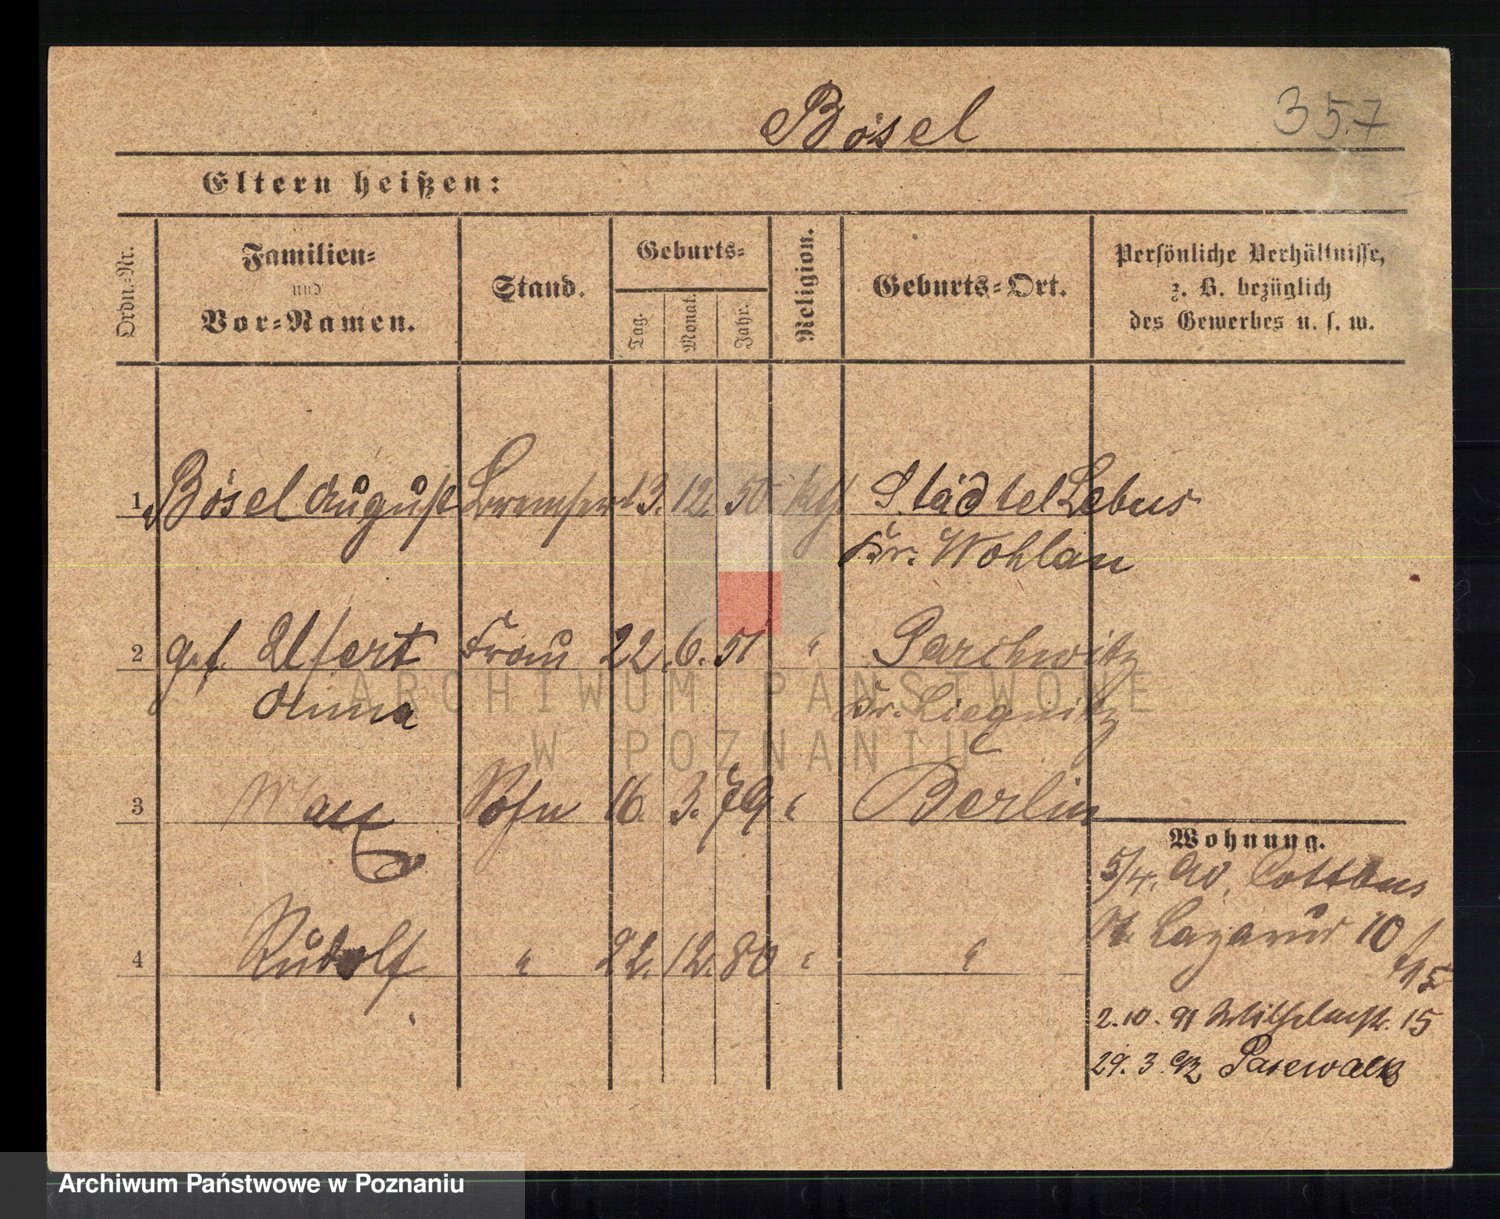 Bösel
357
Eltern heißen:
Ordn.-Nr.
Familien-
und
Vor-Namen.
Stand.
Geburts-
Tag.
Monat.
Jahr.
Religion.
Geburts-Ort.
Persönliche Verhältnisse,
z. B. bezüglich
des Gewerbes u. s. w.
1 Bösel August Bremser 13. 12. 50 kth Städtel Lebus
Kr. Wohlau
2 geb. Frau 22. 6. 51 " Parchwitz
Anna Kr. Liegnitz
3 Max Sohn 16. 3. 79 " Berlin
4 Rudolf " 22. 12. 80 " "
Wohnung.
5/4. 90. Cottbus
St. Lazarus 10
15
2.10.91 Wilhelmstr. 15
29.3.92 Pasewalk
ARCHIWUM PAŃSTWOWE
W POZNANIU
Archiwum Państwowe w Poznaniu